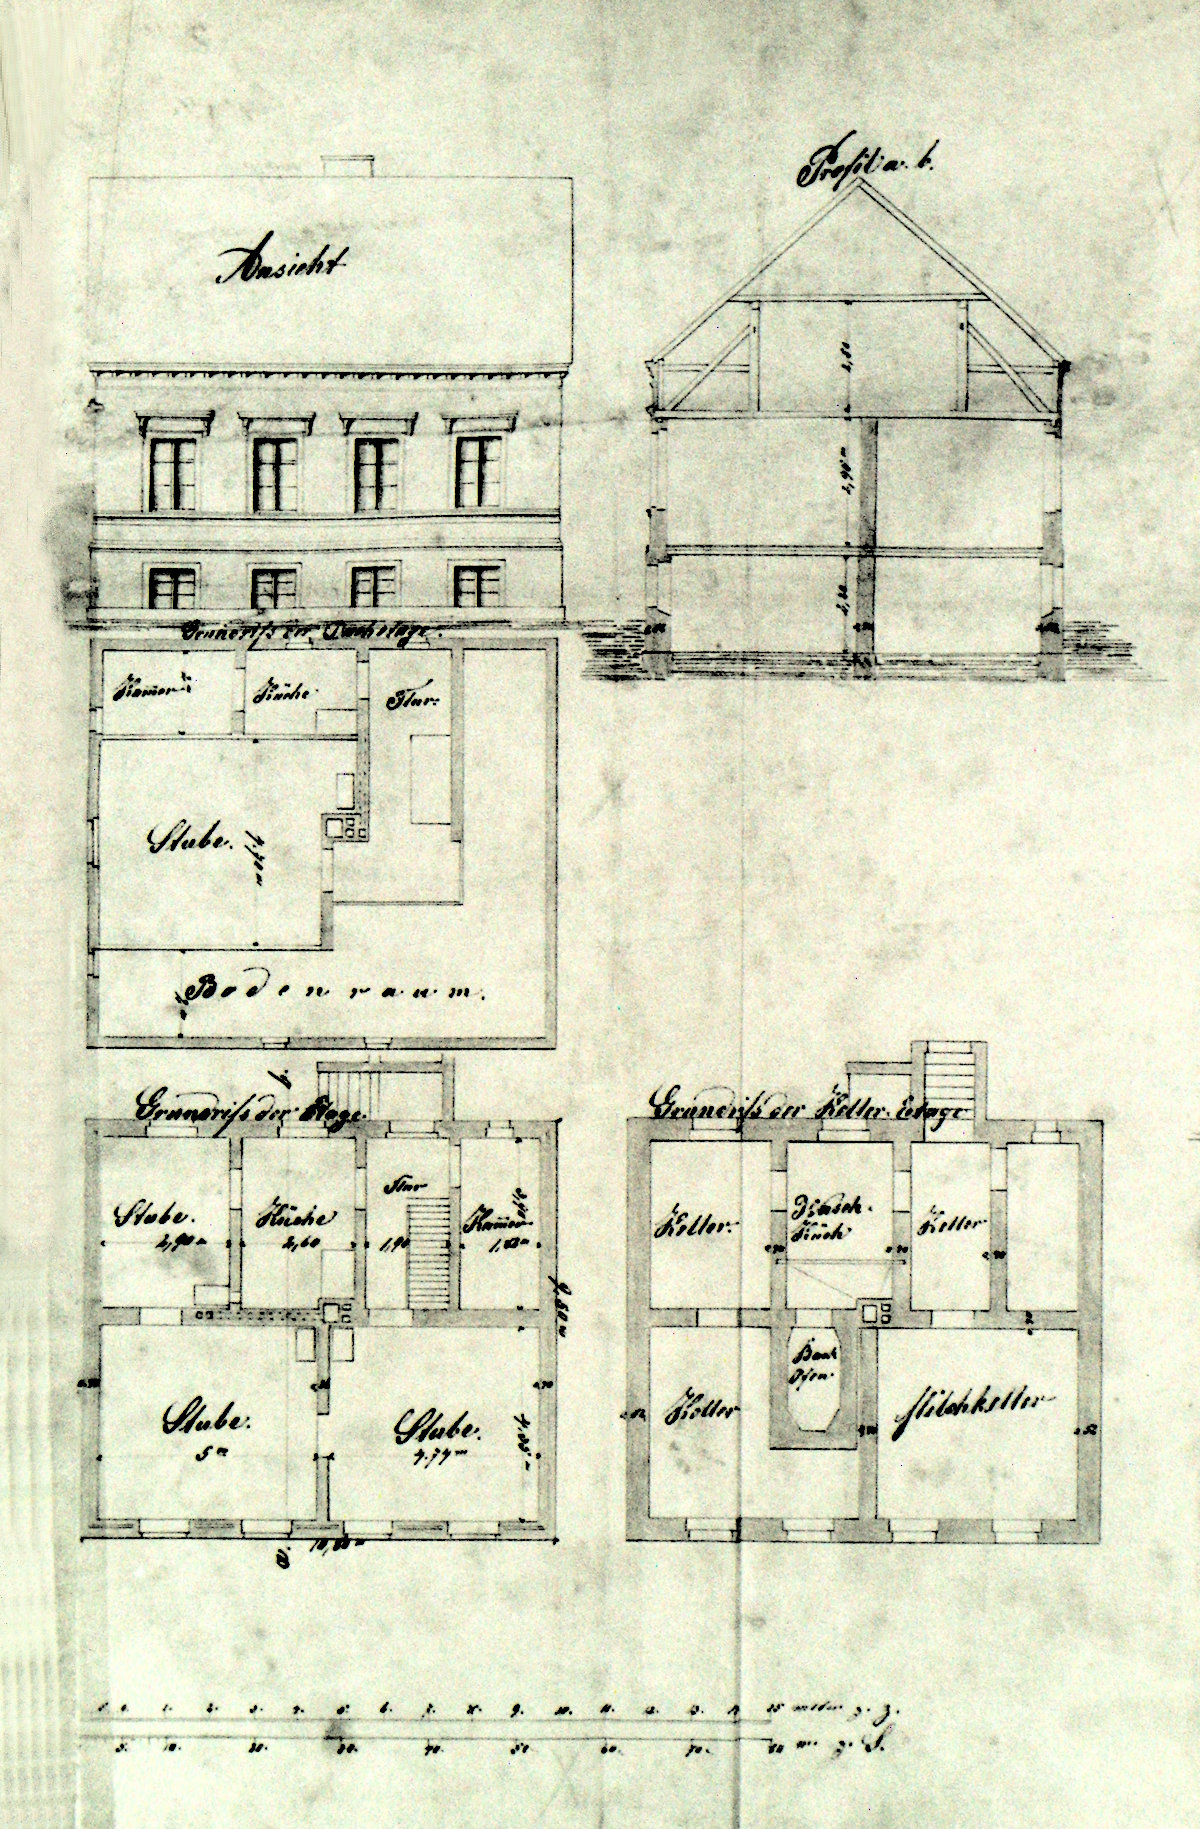 Profil a. b.
Ansicht
2,90 m
Grundriſs der Dachetage.
Kam̄er
Küche
Flur.
Stube.
4,70 m
Bodenraum.
b.
Grundriſs der Etage.
Stube.
2,90 m
Küche
2,60
Flur
1,90
Kam̄er
Stube.
5 m
Stube.
4.74 m
4.05 m
9,50 m
a.
10,00 m
Grundriſs der Keller. Etage
Keller.
Wasch.
Küch
Keller
Keller
Back
Ofen
Milchkeller
1. 2. 3. 4. 5. 6. 7. 8. 9. 10. 11. 12. 13. 14 15
5. 10. 20. 30. 40. 50. 60. 70.